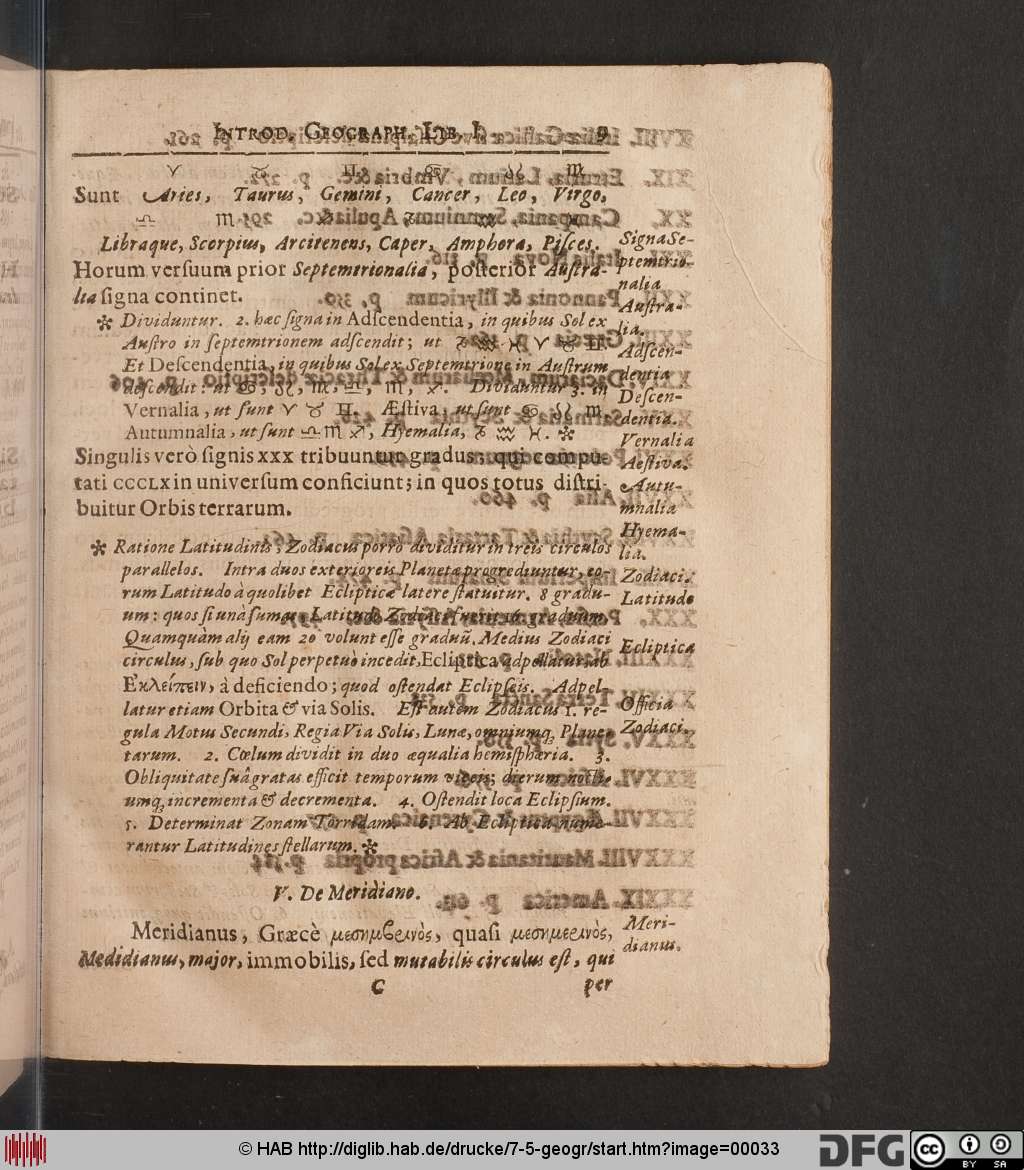 INTROD. GEOGRAPH. LIB. I. 9
♈ ♉ ♊ ♋ ♌ ♍
Sunt Aries, Taurus, Gemini, Cancer, Leo, Virgo,
♎ ♏
Libraque, Scorpius, Arcitenens, Caper, Amphora, Piſces.
Horum verſuum prior Septemtrionalia, poſterior Auſtra-
lia ſigna continet.
✻ Dividuntur. 2. hæc ſigna in Adſcendentia, in quibus Sol ex
Auſtro in ſeptemtrionem adſcendit; ut ♑ ♒ ♓ ♈ ♉ ♊.
Et Deſcendentia, in quibus Sol ex Septemtrione in Auſtrum
deſcendit: ut ♋, ♌, ♍, ♎, ♏, ♐. Dividuntur 3. in
Vernalia, ut ſunt ♈ ♉ ♊. Æſtiva, ut ſunt ♋ ♌ ♍.
Autumnalia, ut ſunt ♎ ♏ ♐, Hyemalia, ♑ ♒ ♓. ✻
Singulis verò ſignis xxx tribuuntur gradus: qui compu-
tati CCCLX in univerſum conficiunt; in quos totus diſtri-
buitur Orbis terrarum.
✻ Ratione Latitudinis, Zodiacus porrò dividitur in treis circulos
parallelos. Intra duos exterioreis Planetæ progrediuntur, eo-
rum Latitudo à quolibet Eclipticæ latere ſtatuitur. 8 gradu-
um: quos ſi unà ſumas, Latitudo Zodiaci fuerit 16 graduum.
Quamquàm alij eam 20 volunt eſſe graduũ. Medius Zodiaci
circulus, ſub quo Sol perpetuò incedit, Ecliptica adpellatur ab
Ἐκλείπειν, à deficiendo; quod oſtendat Eclipſeis. Adpel-
latur etiam Orbita & via Solis. Eſt autem Zodiacus 1. re-
gula Motus Secundi, Regia Via Solis, Lunæ, omniumq; Plane-
tarum. 2. Cœlum dividit in duo æqualia hemiſphæria. 3.
Obliquitate ſuâ gratas efficit temporum viceis; dierum nocti-
umq; incrementa & decrementa. 4. Oſtendit loca Eclipſium.
5. Determinat Zonam Torridam. 6. Ab Ecliptica nume-
rantur Latitudines ſtellarum. ✻
V. De Meridiano.
Meridianus, Græcè μεσημβρινὸς, quaſi μεσημερινὸς,
Medidianus, major, immobilis, ſed mutabilis circulus eſt, qui
C per
Signa Se-
ptemtrio-
nalia
Auſtra-
lia.
Adſcen-
dentia
Deſcen-
dentia.
Vernalia
Aeſtiva.
Autu-
mnalia
Hyema-
lia.
Zodiaci.
Latitudo
Ecliptica
Officia
Zodiaci.
Meri-
dianus.
© HAB http://diglib.hab.de/drucke/7-5-geogr/start.htm?image=00033
DFG
cc BY SA